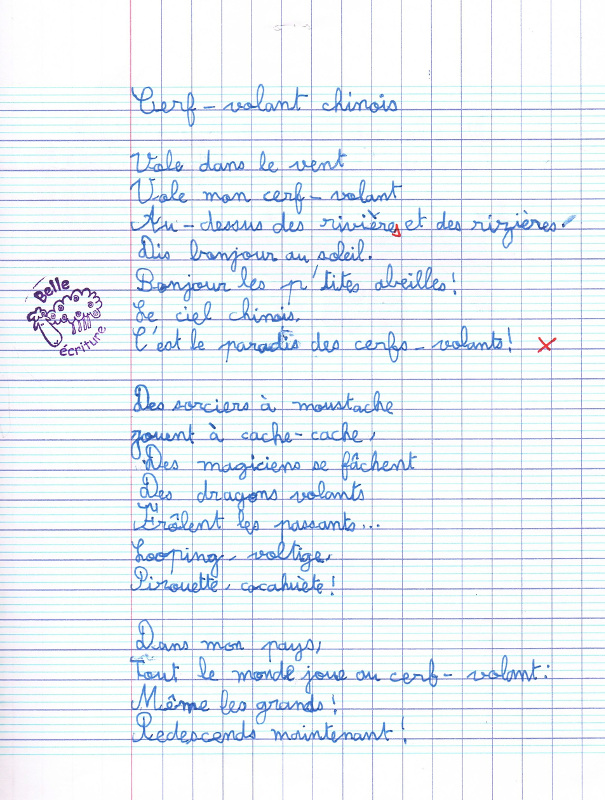 Cerf-volant chinois
Vole dans le vent
Vole mon cerf-volant
Au-dessus des rivières et des rizières.
Dis bonjour au soleil.
Bonjour les p'tites abeilles !
Le ciel chinois,
C'est le paradis des cerfs-volants !
Belle
écriture
Des sorciers à moustache
jouent à cache-cache,
Des magiciens se fâchent
Des dragons volants
Frôlent les passants...
Looping, voltige,
Pirouette, cacahuète !
Dans mon pays,
Tout le monde joue au cerf-volant :
Même les grands !
Redescends maintenant !